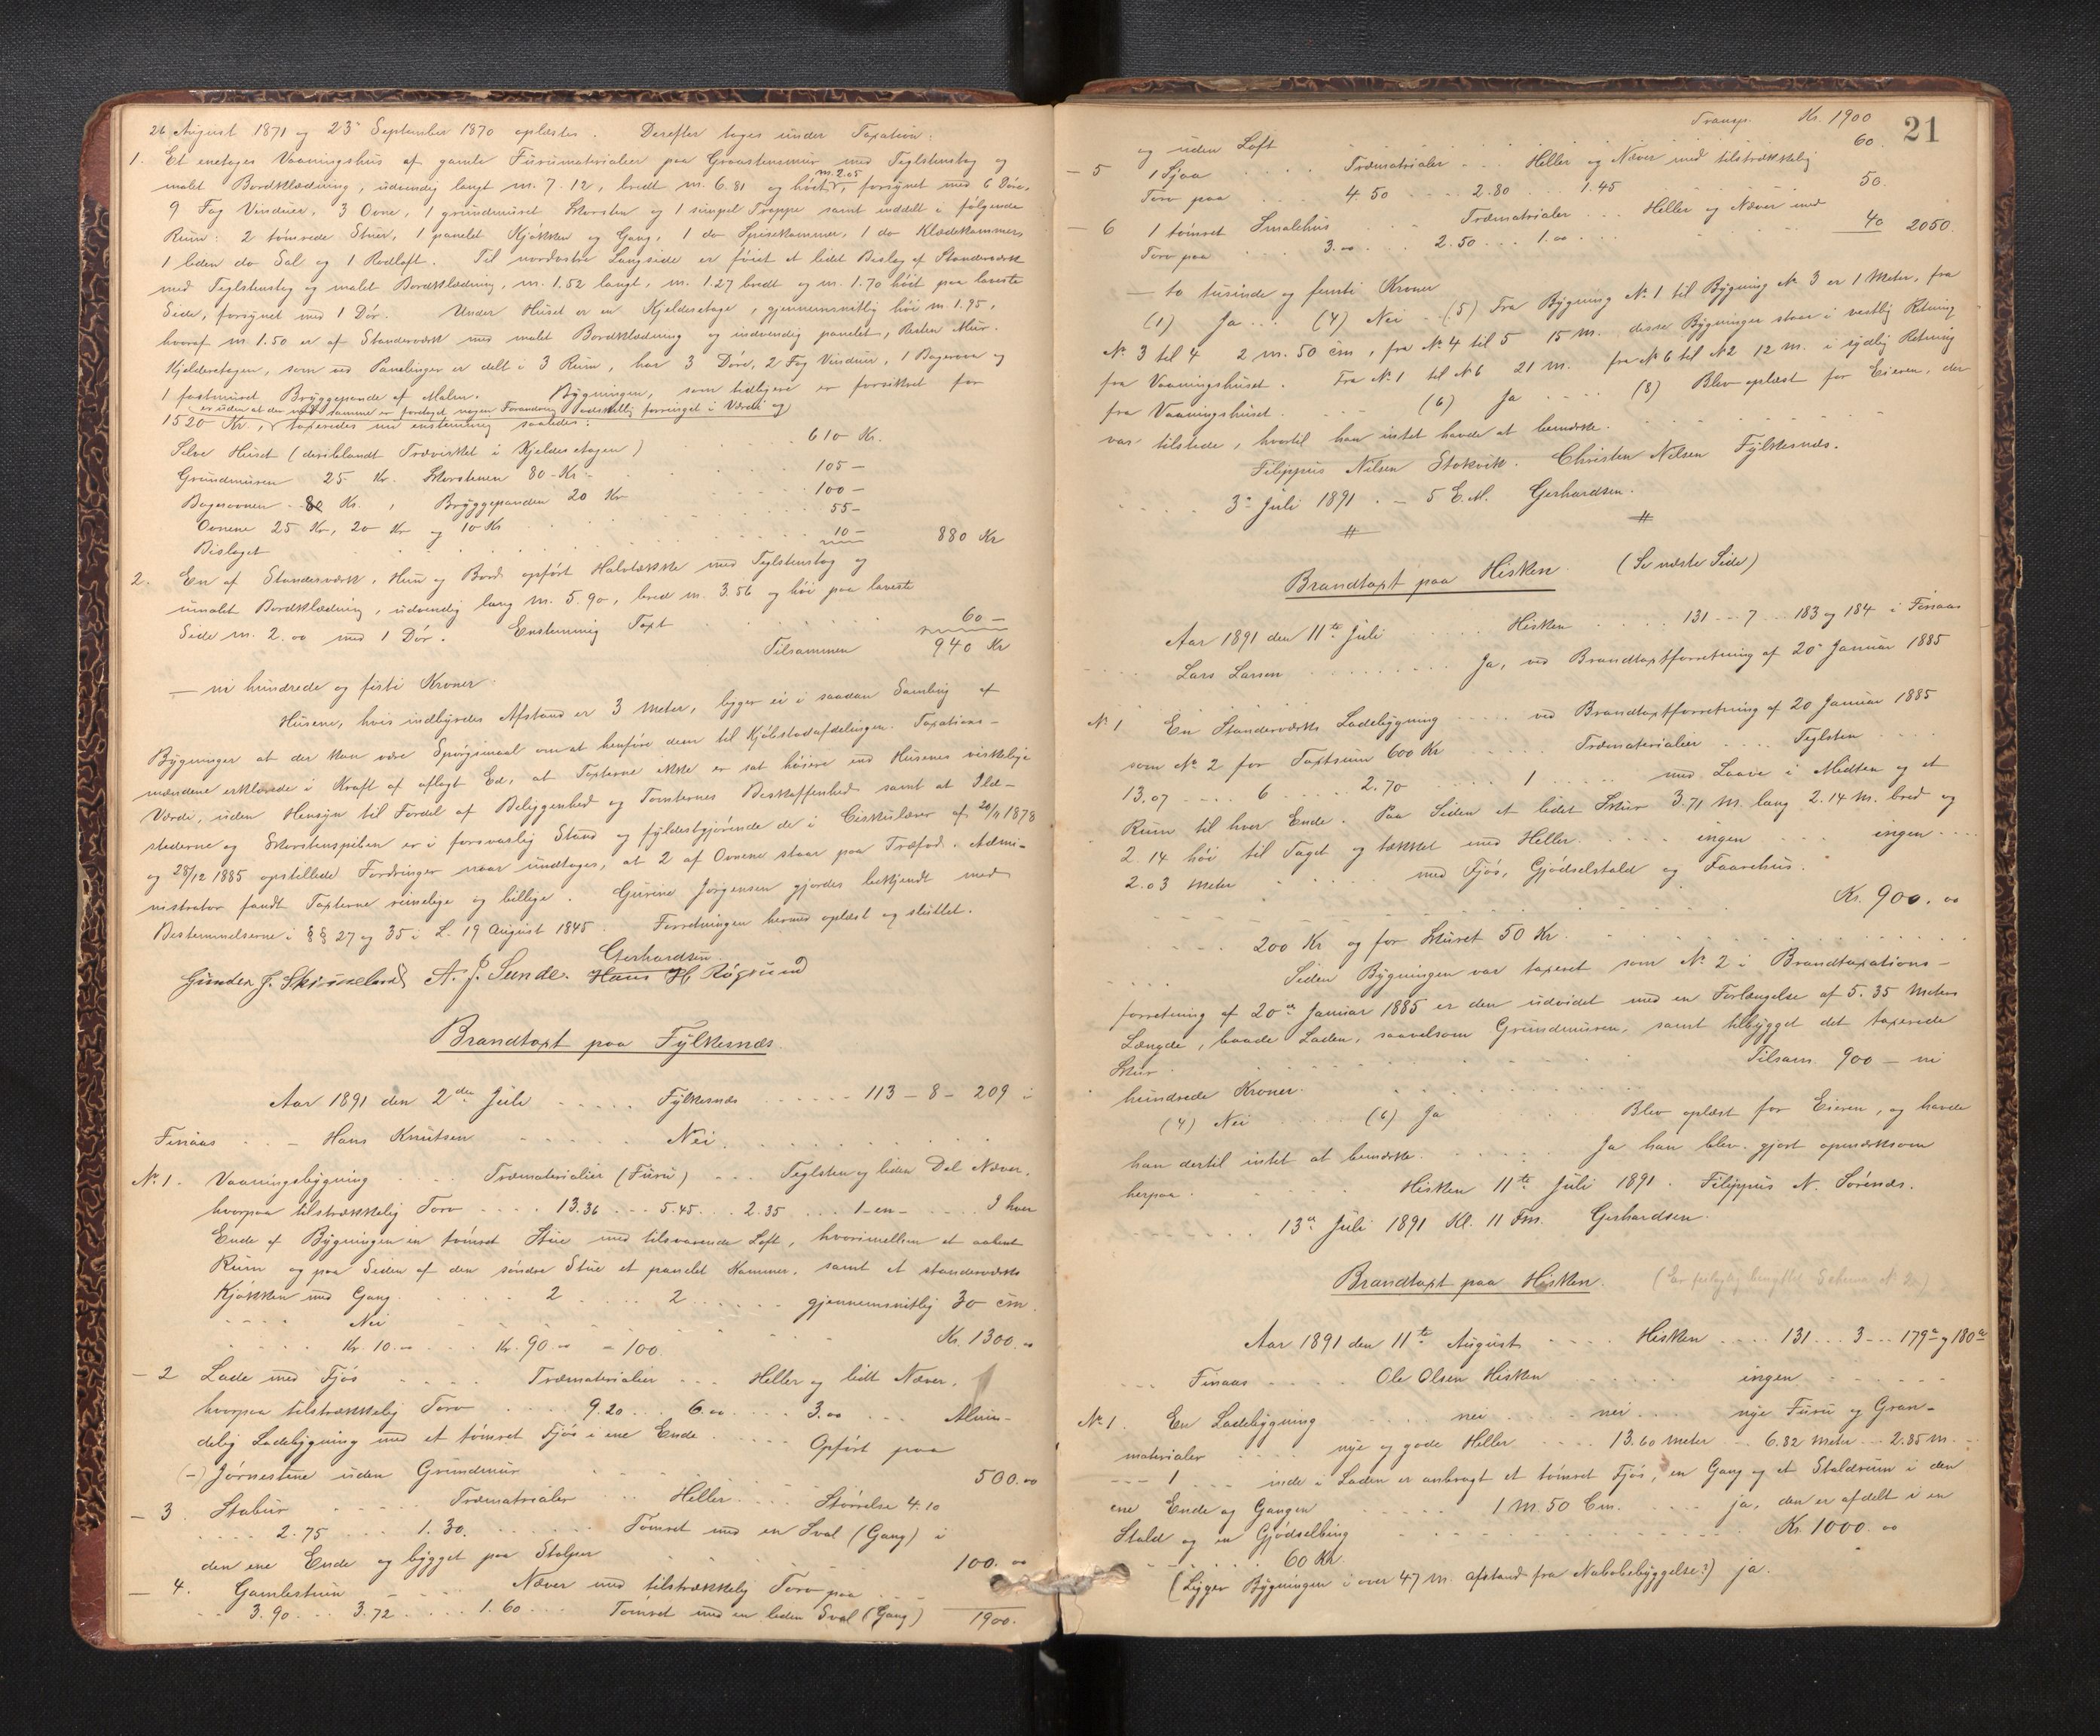 26 August 1871 og 23de September 1870 oplæstes. Derefter toges under Taxation:
1. Et enetages Vaaningshus af gamle Furumaterialier paa Graastensmur med Teglstenstag og
malet Bordklædning, udvendig langt m. 7.12, bredt m. 6.81 og høit m. 2.05, forsynet med 6 Døre,
9 Fag Vinduer, 3 Ovne, 1 grundmuret Skorsten og 1 simpel Trappe samt inddelt i følgende
Rum: 2 tømrede Stuer, 1 panelet Kjøkken og Gang, 1 do Spisekammer, 1 do Klædekammers
1 liden do Sal og 1 Rodloft. Til nordostre Langside er føiet et lidet Bislag af Standerværk
med Teglstenstag og malet Bordklædning, m. 1.52 langt, m. 1.27 bredt og m. 1.70 høit paa laveste
Side, forsynet med 1 Dør. Under Huset er en Kjelderetage, gjennemsnitlig høi m. 1.95,
hvoraf m. 1.50 er af Standerværk med malet Bordklædning og indvendig panelet, Resten Mur.
Kjelderetagen, som ved Panelinger er delt i 3 Rum, har 3 Døre, 2 Fag Vinduer, 1 Bagerovn og
1 fastmuret Bryggepande af Malm. Bygningen, som tidligere er forsikret for
er uden at der med samme er foretaget nogen Forandring adskillig forringet i Værdi og
1520 Kr., taxeredes nu enstemmig saaledes:
Selve Huset (deriblandt Træverket i Kjelderetagen) 610 Kr.
Grundmuren 25 Kr. Skorstenen 80 Kr 105 —
Bagerovnen 80 Kr., Bryggepanden 20 Kr 100 —
Ovnene 25 Kr, 20 Kr og 10 Kr 55 —
Bislaget 10 — 880 Kr
2. En af Standerværk, Hun og Bord opført Halvtække med Teglstenstag og
umalet Bordklædning, udvendig lang m. 5.90, bred m. 3.56 og høi paa laveste
Side m. 2.00 med 1 Dør. Enstemmig Taxt 60 —
Tilsammen 940 Kr
— ni hundrede og firti Kroner.
Husene, hvis indbyrdes Afstand er 3 Meter, ligger ei i saadan Samling af
Bygninger at der kan være Spørgsmaal om at henføre dem til Kjøbstadafdelingen. Taxations-
mændene erklærede i Kraft af aflagt Ed, at Taxterne ikke er sat høiere end Husenes virkelige
Værdi, uden Hensyn til Fordel af Beliggenhed og Tomternes Beskaffenhed samt at Ild-
stederne og Skorstenspiben er i forsvarlig Stand og fyldestgjørende de i Cirkulærer af 20/11 1878
og 28/12 1885 opstillede Fordringer naar undtages, at 2 af Ovnene staar paa Træfod. Admi-
nistrator fandt Taxterne rimelige og billige. Gurine Jørgensen gjordes bekjendt med
Bestemmelserne i §§ 27 og 35 i L. 19 August 1845. Forretningen hermed oplæst og sluttet.
Gerhardsen.
Gunder J. Skimmeland A. J. Sunde. Hans H. Røgsund
Brandtaxt paa Fylkesnæs.
Aar 1891 den 2den Juli ..... Fylkesnæs ...... 113 – 8 – 209 i
Finaas ... – Hans Knutsen ..... Nei.
No. 1. Vaaningsbygning .... Træmaterialier (Furu) ... Teglsten og liden Del Næver,
hvorpaa tilstrækkelig Torv .... 13.36 ... 5.45 ... 2.35 .... 1–en– .... I hver
Ende af Bygningen en tømret Stue med tilsvarende Loft, hvorimellem et aabent
Rum og paa Siden af den søndre Stue et panelet Kammer, samt et standerværks
Kjøkken med Gang. ..... 2 .... 2 ..... gjennemsnitlig 30 cm.
.... Nei
.... Kr. 10.00 .... Kr. 90.00 – 100. Kr. 1300.00
– 2 Lade med Fjøs .... Træmaterialier ... Heller og lidt Næver,
hvorpaa tilstrækkelig Torv .... 9.20 ... 6.00 .... 3.00 ... Almin-
delig Ladebygning med et tømret Fjøs i ene Ende .... Opført paa
(–) Jørnestene uden Grundmur 500.00
– 3. Stabur ..... Træmatrialer .. Heller ... Størrelse 4.10
.... 2.75 .... 1.30. ...... Tømret med en Sval (Gang) i
den ene Ende og bygget paa Stolper 100.00
– 4. Gamlestuen .... Næver med tilstrækkelig Torv paa ...
.. 3.90 ... 3.72 .... 1.60 ... Tømret med en liden Sval (Gang) 1900.
21
Transp. Kr. 1900
og uden Loft 60.
– 5 1 Sjaa .... Træmatrialer ... Heller og Næver med tilstrækkelig
Torv paa .... 4.50 .... 2.80 .... 1.45 50.
– 6 1 tømret Smalehus Træmatrialer ... Heller og Næver med
Torv paa .... 3.00 .... 2.50 ... 1.00 ... 40 2050.
— to tusinde og femti Kroner
(1) Ja ... (4) Nei .. (5) Fra Bygning No. 1 til Bygning No. 3 er 1 Meter, fra
No. 3 til 4 2 m. 50 cm, fra No. 4 til 5 15 m. disse Bygninger staar i vestlig Retning
fra Vaaningshuset. Fra No. 1 til No 6 21 m. fra No 6 til No 2 12 m. i sydlig Retning
fra Vaaningshuset. ... (6) Ja .... (8) Blev oplæst for Eieren, der
var tilstede, hvortil han intet havde at bemærke.
Filippus Nilsen Stokvik. Christen Nilsen Fylkesnæs.
..... 3de Juli 1891. – 5 E.M. Gerhardsen.
Brandtaxt paa Hisken. (Se næste Side)
Aar 1891 den 11te Juli .... Hisken ..... 131 ... 7 ... 183 og 184 i Finaas
... Lars Larsen ....... Ja, ved Brandtaxtforretning af 20de Januar 1885
No. 1 En Standerværks Ladebygning .... ved Brandtaxtforretning af 20 Januar 1885
som No. 2 for Taxtsum 600 Kr .... Træmaterialier .... Teglsten ....
13.07 .... 6 ..... 2.70 ..... 1 .... med Laave i Midten og et
Rum til hver Ende. Paa Siden et lidet Skur 3.71 m. lang 2.14 m. bred og
2.14 høi til Taget og tækket med Heller. .... ingen ... ingen ....
2.03 Meter .... med Fjøs, Gjødselstald og Faarehus.
Kr. 900.00
.... 200 Kr og for Skuret 50 Kr. ....
... Siden Bygningen var taxeret som No. 2 i Brandtaxations-
forretning af 20de Januar 1885 er den udvidet med en Forlængelse af 5.35 Meters
Længde, baade Laden, saavelsom Grundmuren, samt tilbygget det taxerede
Skur. Tilsam. 900 — ni
hundrede Kroner.
(4) Nei ..... (6) Ja .... Blev oplæst for Eieren, og havde
han dertil intet at bemærke. ..... Ja han blev gjort opmærksom
herpaa. ..... Hisken 11te Juli 1891. Filippus N. Sørenæs.
.... 13de Juli 1891 Kl. 11 Fm. Gerhardsen.
Brandtaxt paa Hisken.
Aar 1891 den 11te August .... Hisken .... 131 ... 3 ... 179a og 180a
... Finaas .... Ole Olsen Hisken ..... ingen .....
No. 1. En Ladebygning .... nei .... nei .... nye Furu og Gran-
materialer .... nye og gode Heller .... 13.60 meter .. 6.82 meter .. 2.85 m.
... 1 .... inde i Laden er anbragt et tømret Fjøs, en Gang og et Staldrum i den
ene Ende og Gangen ..... 1 m. 50 Cm. .... ja, den er afdelt i en
Stald og en Gjødselbing ..... Kr. 1000.00
.... 60 Kr.
(Ligger Bygningen i over 47 m. afstand fra Nabobebyggelse?) ja.